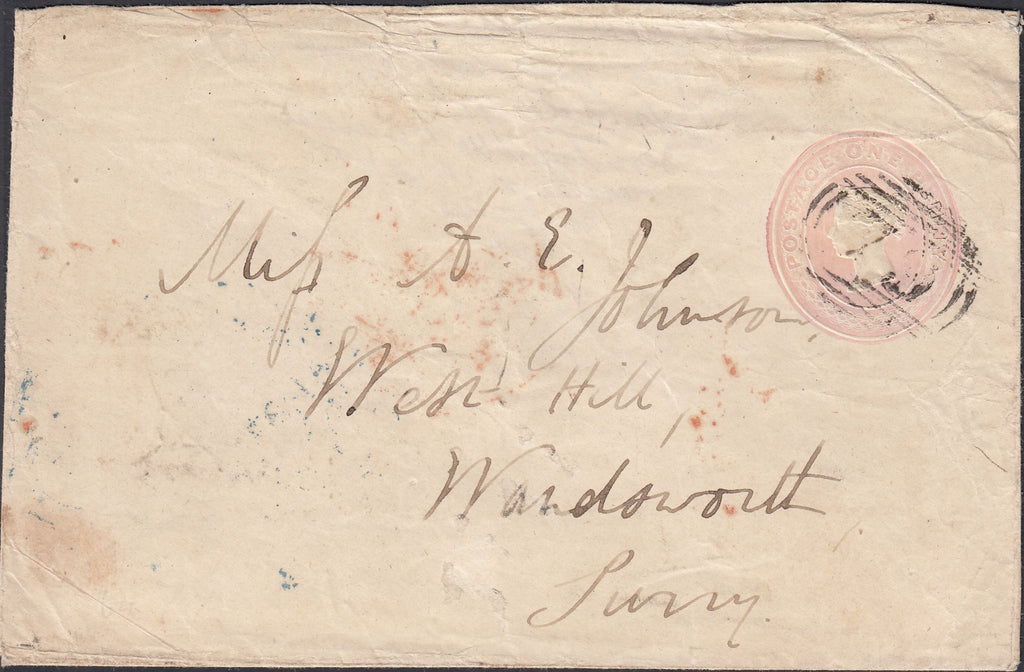 POSTAGE ONE
Miſs A. E. Johnson,
West Hill,
Wandsworth,
Surry.